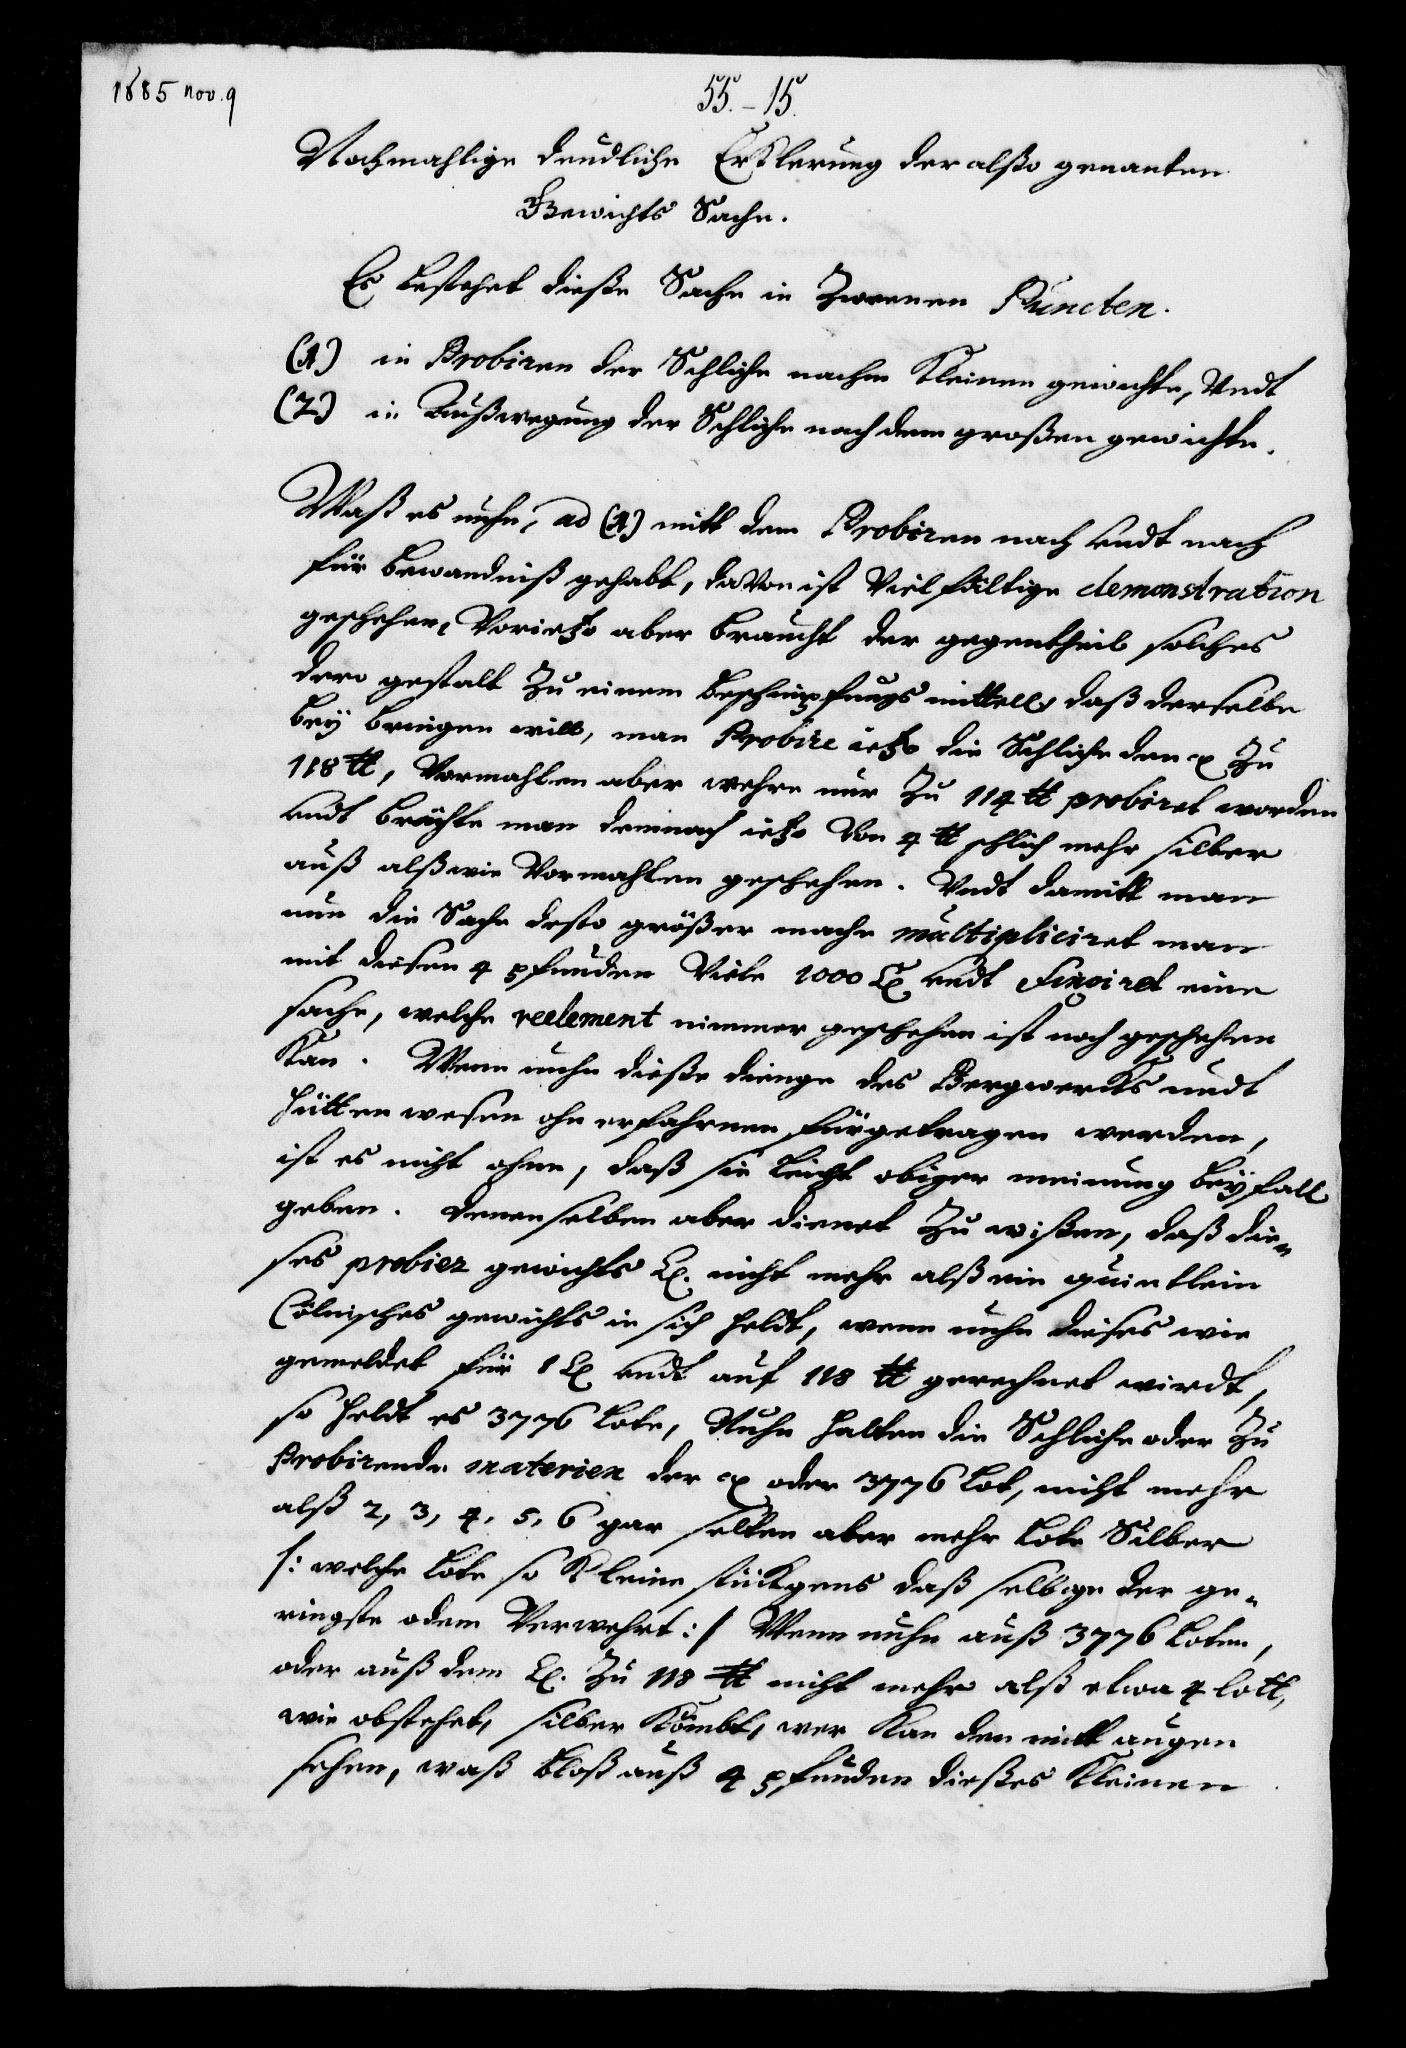 1685 nov. 9
55.-15.
Nochmahlige deudliche Erklerung der alßo genanten
Gewichts Sache.
Es bestehet dieße Sache in Zweenen Puncten.
(1) in Probiren der Schliche nachm Kleinen gewichte, Undt
(2) in Außwegung der Schliche nach dem großen gewichte.
Waß es nuhn, ad (1) mitt dem Probiren nach undt nach
für bewandniß gehabt, davon ist Vielfältige demonstration
geschehen, Vorietzo aber braucht der gegentheil solches
dero gestalt Zu einem beschimpfungs mittell, daß derselbe
bey bringen will, man Probire ietzo die Schliche den C Zu
118 ℔, Vormahlen aber wehre nur Zu 114 ℔ probiret worden
undt brächte man demnach ietzo Von 4 ℔ schlich mehr silber
auß alß wie Vormahlen geschehen. Undt damitt man
nun die Sache desto größer mache multipliciret man
mit diesen 4 pfunden Viele 1000 C undt Fingiret eine
sache, welche reelement nimmer geschehen ist noch geschehen
Kan. Wenn nuhn dieße dienge des Bergwercks undt
Hütten wesen ohn erfahrnen fürgetragen werden,
ist es nicht ohne, daß sie leicht obiger meinung beyfall
geben. denenselben aber dienet Zu wißen, daß die-
ses probier gewichts C. nicht mehr alß ein quintlein
Cölnisches gewichts in sich heldt, wenn nuhn dieses wie
gemeldet für 1 C undt auf 118 ℔ gerechnet wirdt,
so heldt es 3776 Lote, Nuhn halten die Schliche oder Zu
Probirende materien der C oder 3776 Lot, nicht mehr
alß 2, 3, 4, 5, 6 gar selten aber mehr Lote Silber
/: welche Lote so Kleine stückgens daß selbige der ge-
ringste odem Verwehet :/ Wenn nuhn auß 3776 Loten,
oder auß dem C. Zu 118 ℔ nicht mehr alß etwa 4 lott,
wie obstehet, silber Kömbt, wer Kan den mitt augen
sehen, waß bloß auß 4 pfunden dießes Kleinen